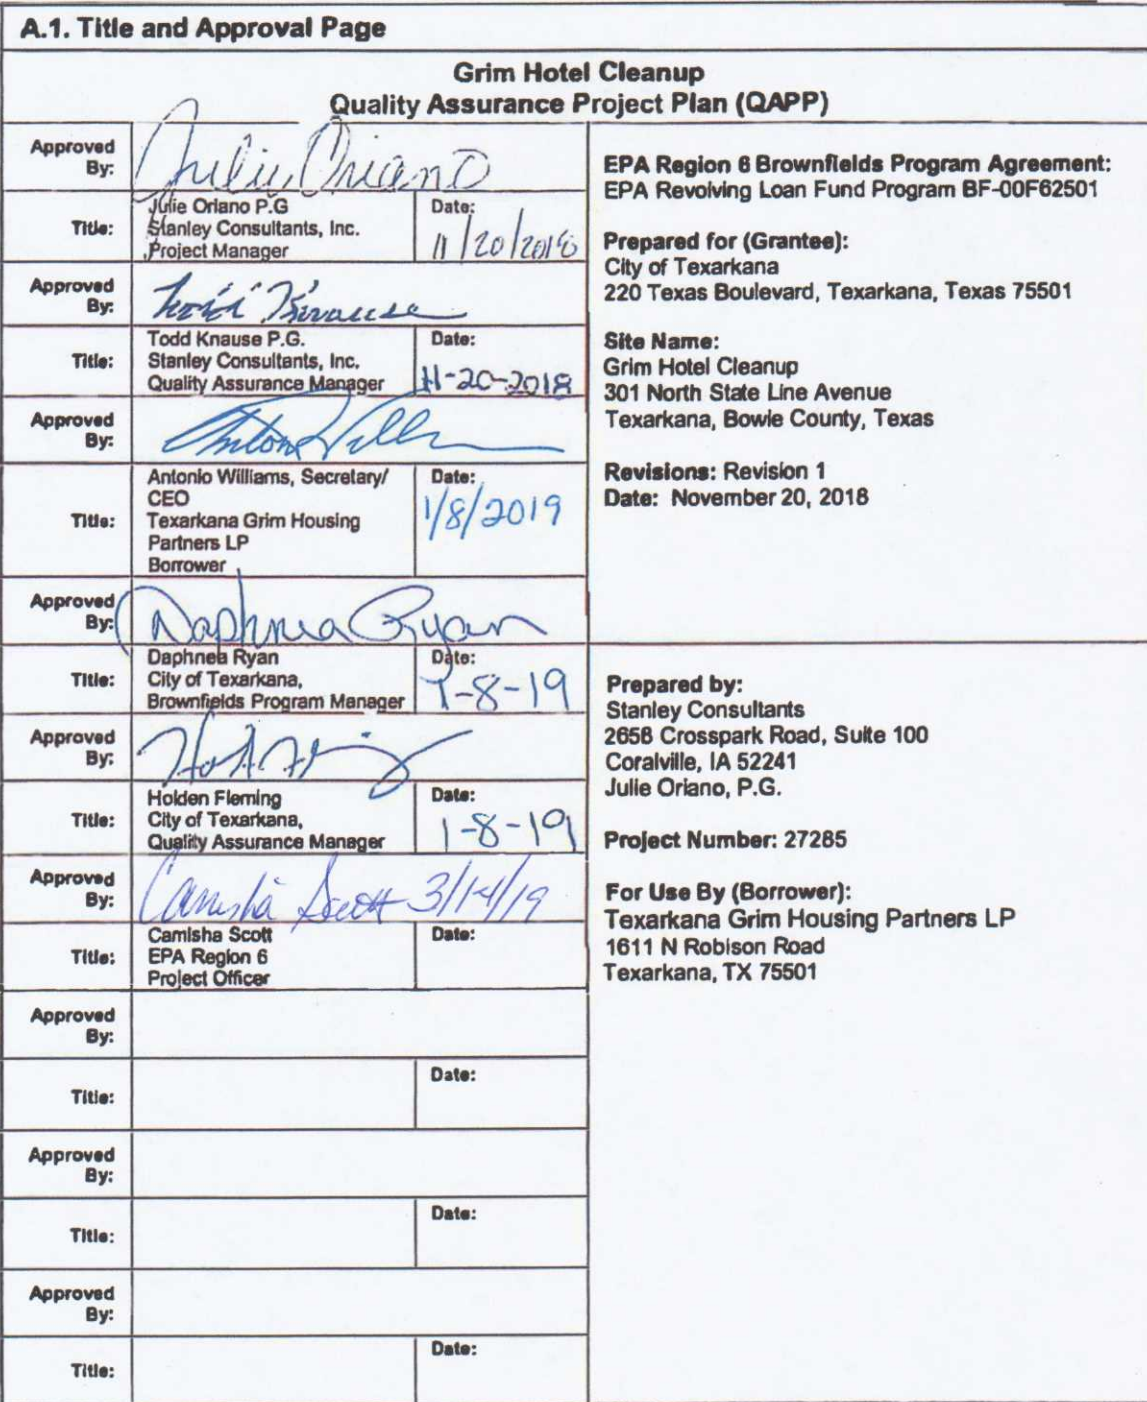 A.1. Title and Approval Page
Grim Hotel Cleanup
Quality Assurance Project Plan (QAPP)
Approved By:
Julie Oriano
Title:
Julie Oriano P.G
Stanley Consultants, Inc.
Project Manager
Date:
11/20/2018
Approved By:
Todd Knause
Title:
Todd Knause P.G.
Stanley Consultants, Inc.
Quality Assurance Manager
Date:
11-20-2018
Approved By:
Title:
Antonio Williams, Secretary/
CEO
Texarkana Grim Housing
Partners LP
Borrower
Date:
1/8/2019
Approved By:
Daphnea Ryan
Title:
Daphnea Ryan
City of Texarkana,
Brownfields Program Manager
Date:
1-8-19
Approved By:
Title:
Holden Fleming
City of Texarkana,
Quality Assurance Manager
Date:
1-8-19
Approved By:
Camisha Scott 3/14/19
Title:
Camisha Scott
EPA Region 6
Project Officer
Date:
Approved By:
Title:
Date:
Approved By:
Title:
Date:
Approved By:
Title:
Date:
EPA Region 6 Brownfields Program Agreement:
EPA Revolving Loan Fund Program BF-00F62501
Prepared for (Grantee):
City of Texarkana
220 Texas Boulevard, Texarkana, Texas 75501
Site Name:
Grim Hotel Cleanup
301 North State Line Avenue
Texarkana, Bowie County, Texas
Revisions: Revision 1
Date: November 20, 2018
Prepared by:
Stanley Consultants
2658 Crosspark Road, Suite 100
Coralville, IA 52241
Julie Oriano, P.G.
Project Number: 27285
For Use By (Borrower):
Texarkana Grim Housing Partners LP
1611 N Robison Road
Texarkana, TX 75501